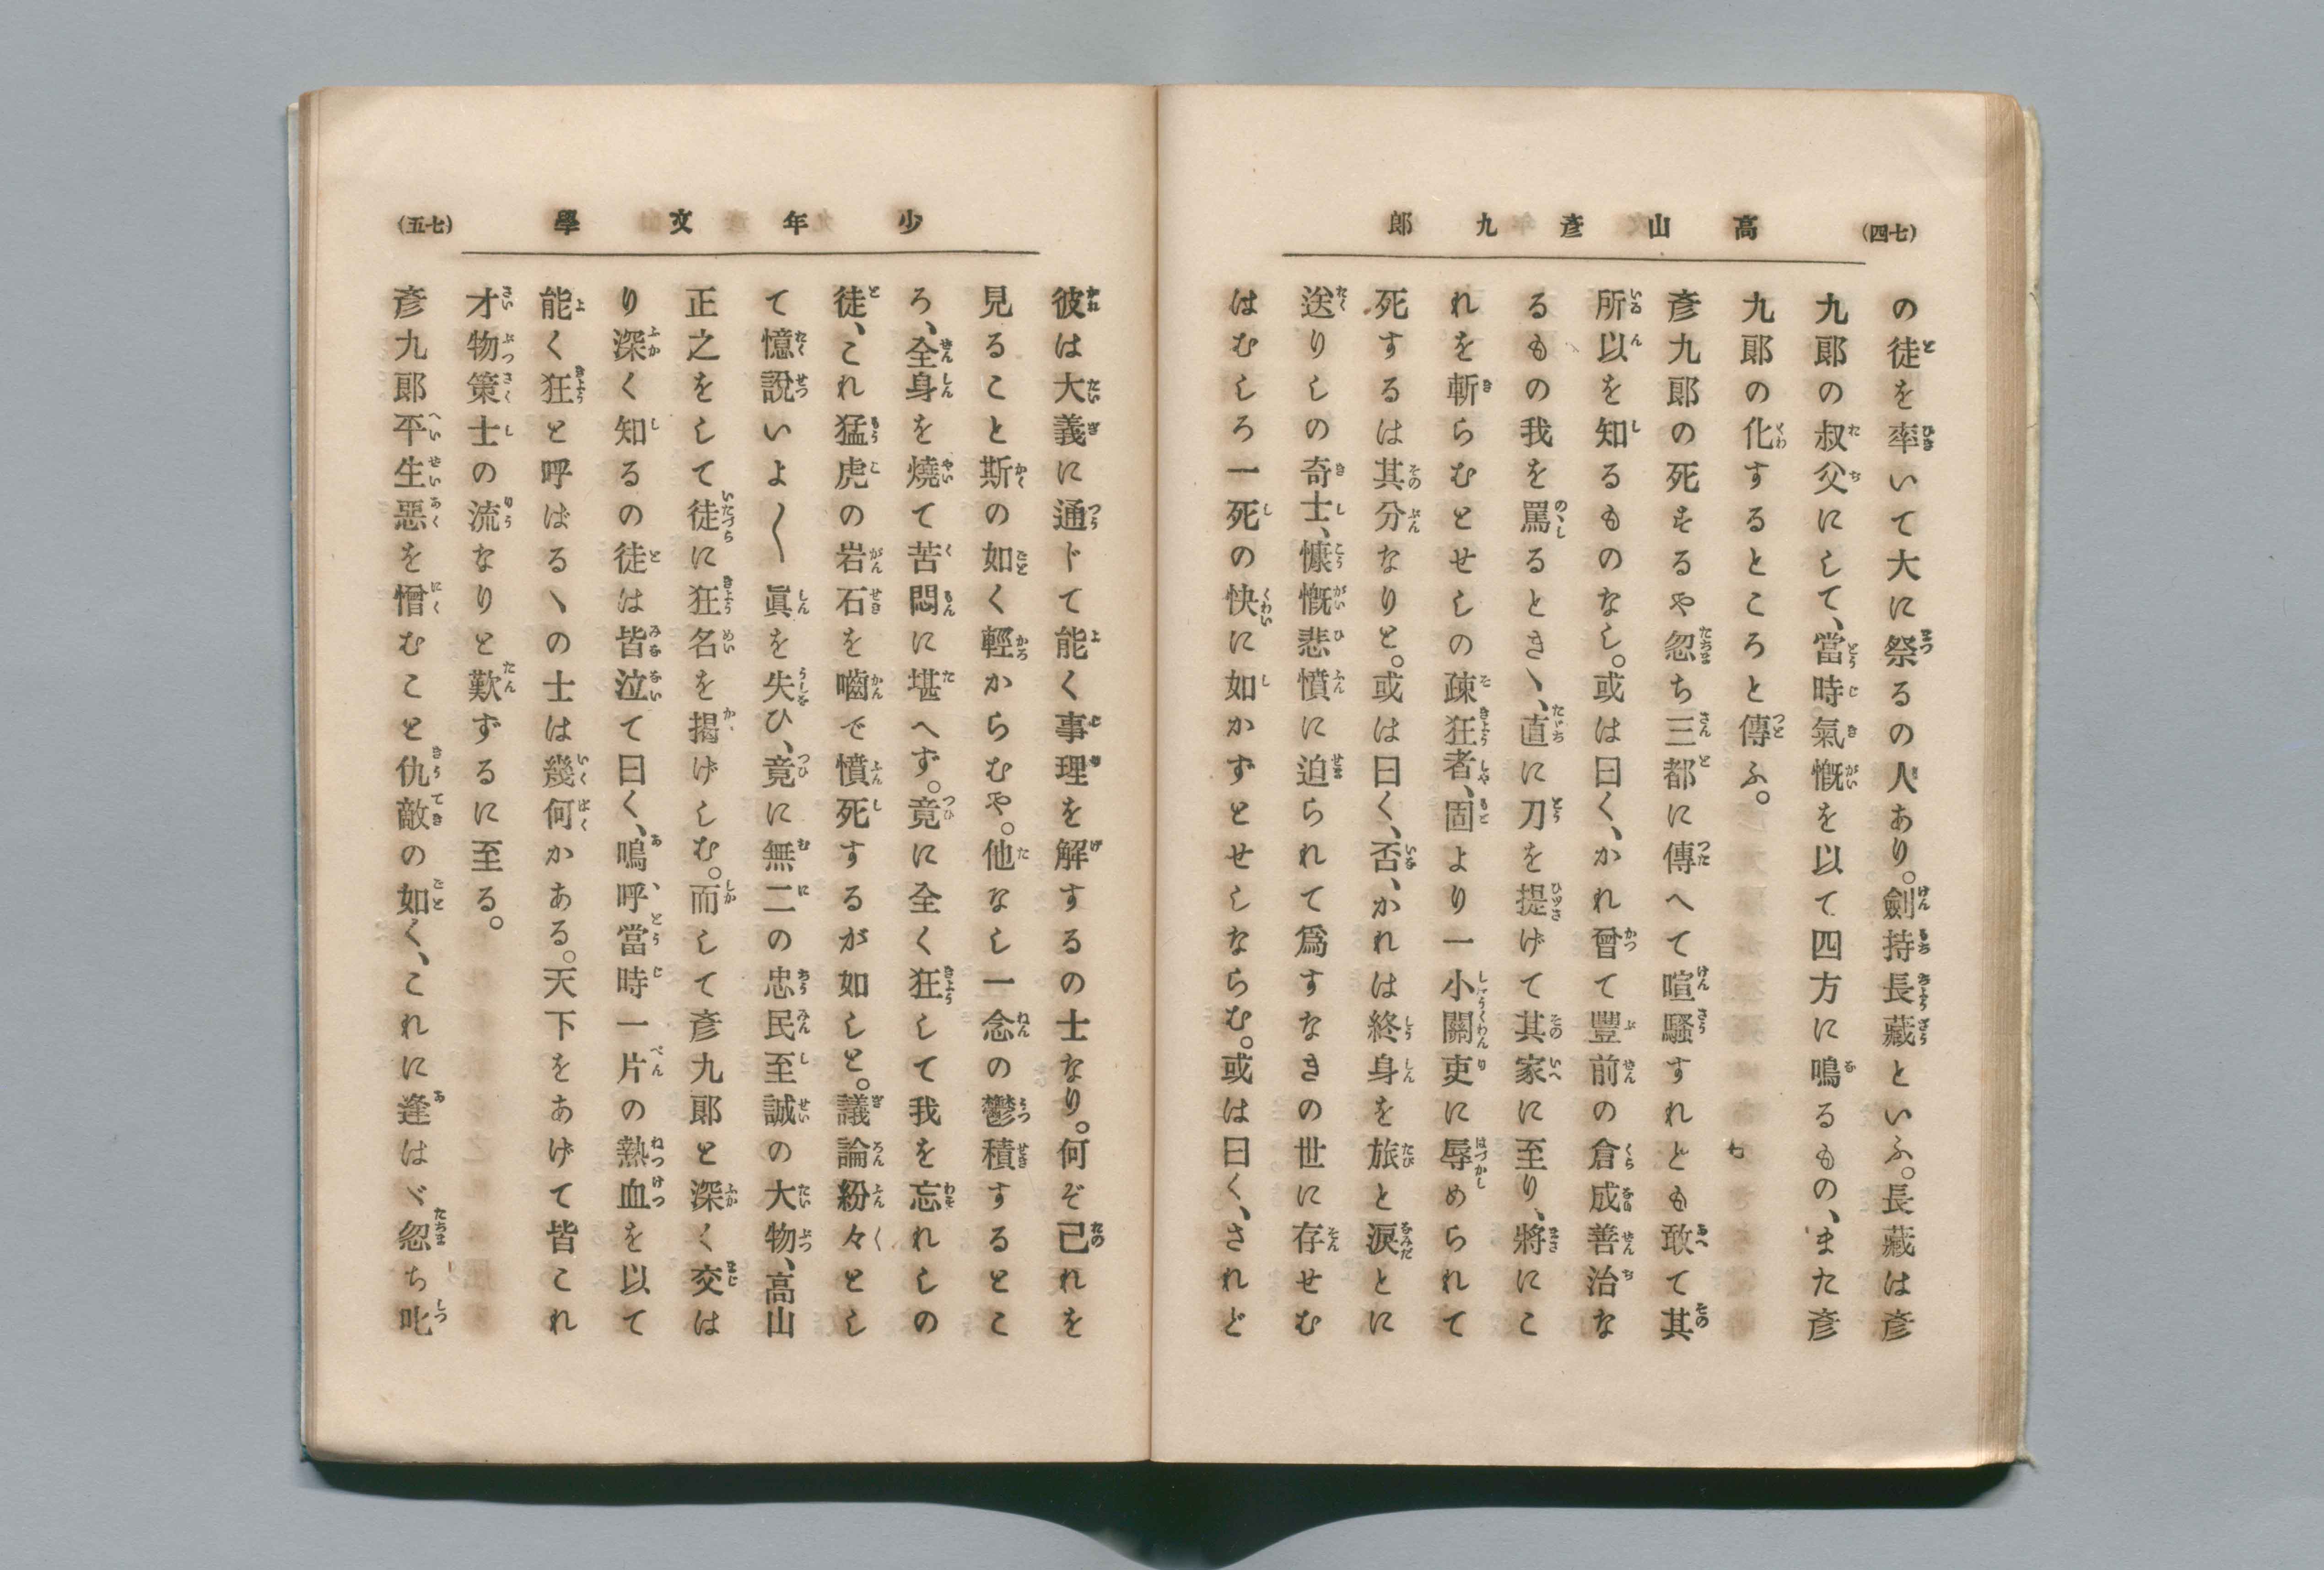 (七四)
高山彦九郎
の徒を率いて大に祭るの人あり。劍持長藏といふ。長藏は彦
九郎の叔父にして、當時氣慨を以て四方に鳴るもの、また彦
九郎の化するところと傳ふ。
も
彦九郎の死するや忽ち三都に傳へて喧騷すれとも敢て其
所以を知るものなし。或は曰く、かれ曾て豐前の倉成善治な
るもの我を罵るときゝ、直に刀を提げて其家に至り、將にこ
れを斬らむとせしの疎狂者、固より一小關吏に辱められて
死するは其分なりと。或は曰く、否、かれは終身を旅と涙とに
送りしの奇士、慷慨悲憤に迫られて爲すなきの世に存せむ
はむしろ一死の快に如かずとせしならむ。或は曰く、されど
(七五)
少年文學
彼は大義に通じて能く事理を解するの士なり。何ぞ己れを
見ること斯の如く輕からむや。他なし一念の鬱積するとこ
ろ、全身を燒て苦悶に堪へず。竟に全く狂して我を忘れしの
徒、これ猛虎の岩石を嚙で憤死するが如しと。議論紛々とし
て憶說いよ〱眞を失ひ、竟に無二の忠民至誠の大物、高山
正之をして徒に狂名を揭げしむ。而して彦九郎と深く交は
り深く知るの徒は皆泣て曰く、嗚呼、當時一片の熱血を以て
能く狂と呼ばるゝの士は幾何かある。天下をあげて皆これ
才物策士の流なりと歎ずるに至る。
彦九郎平生惡を憎むこと仇敵の如く、これに逢はゞ忽ち叱